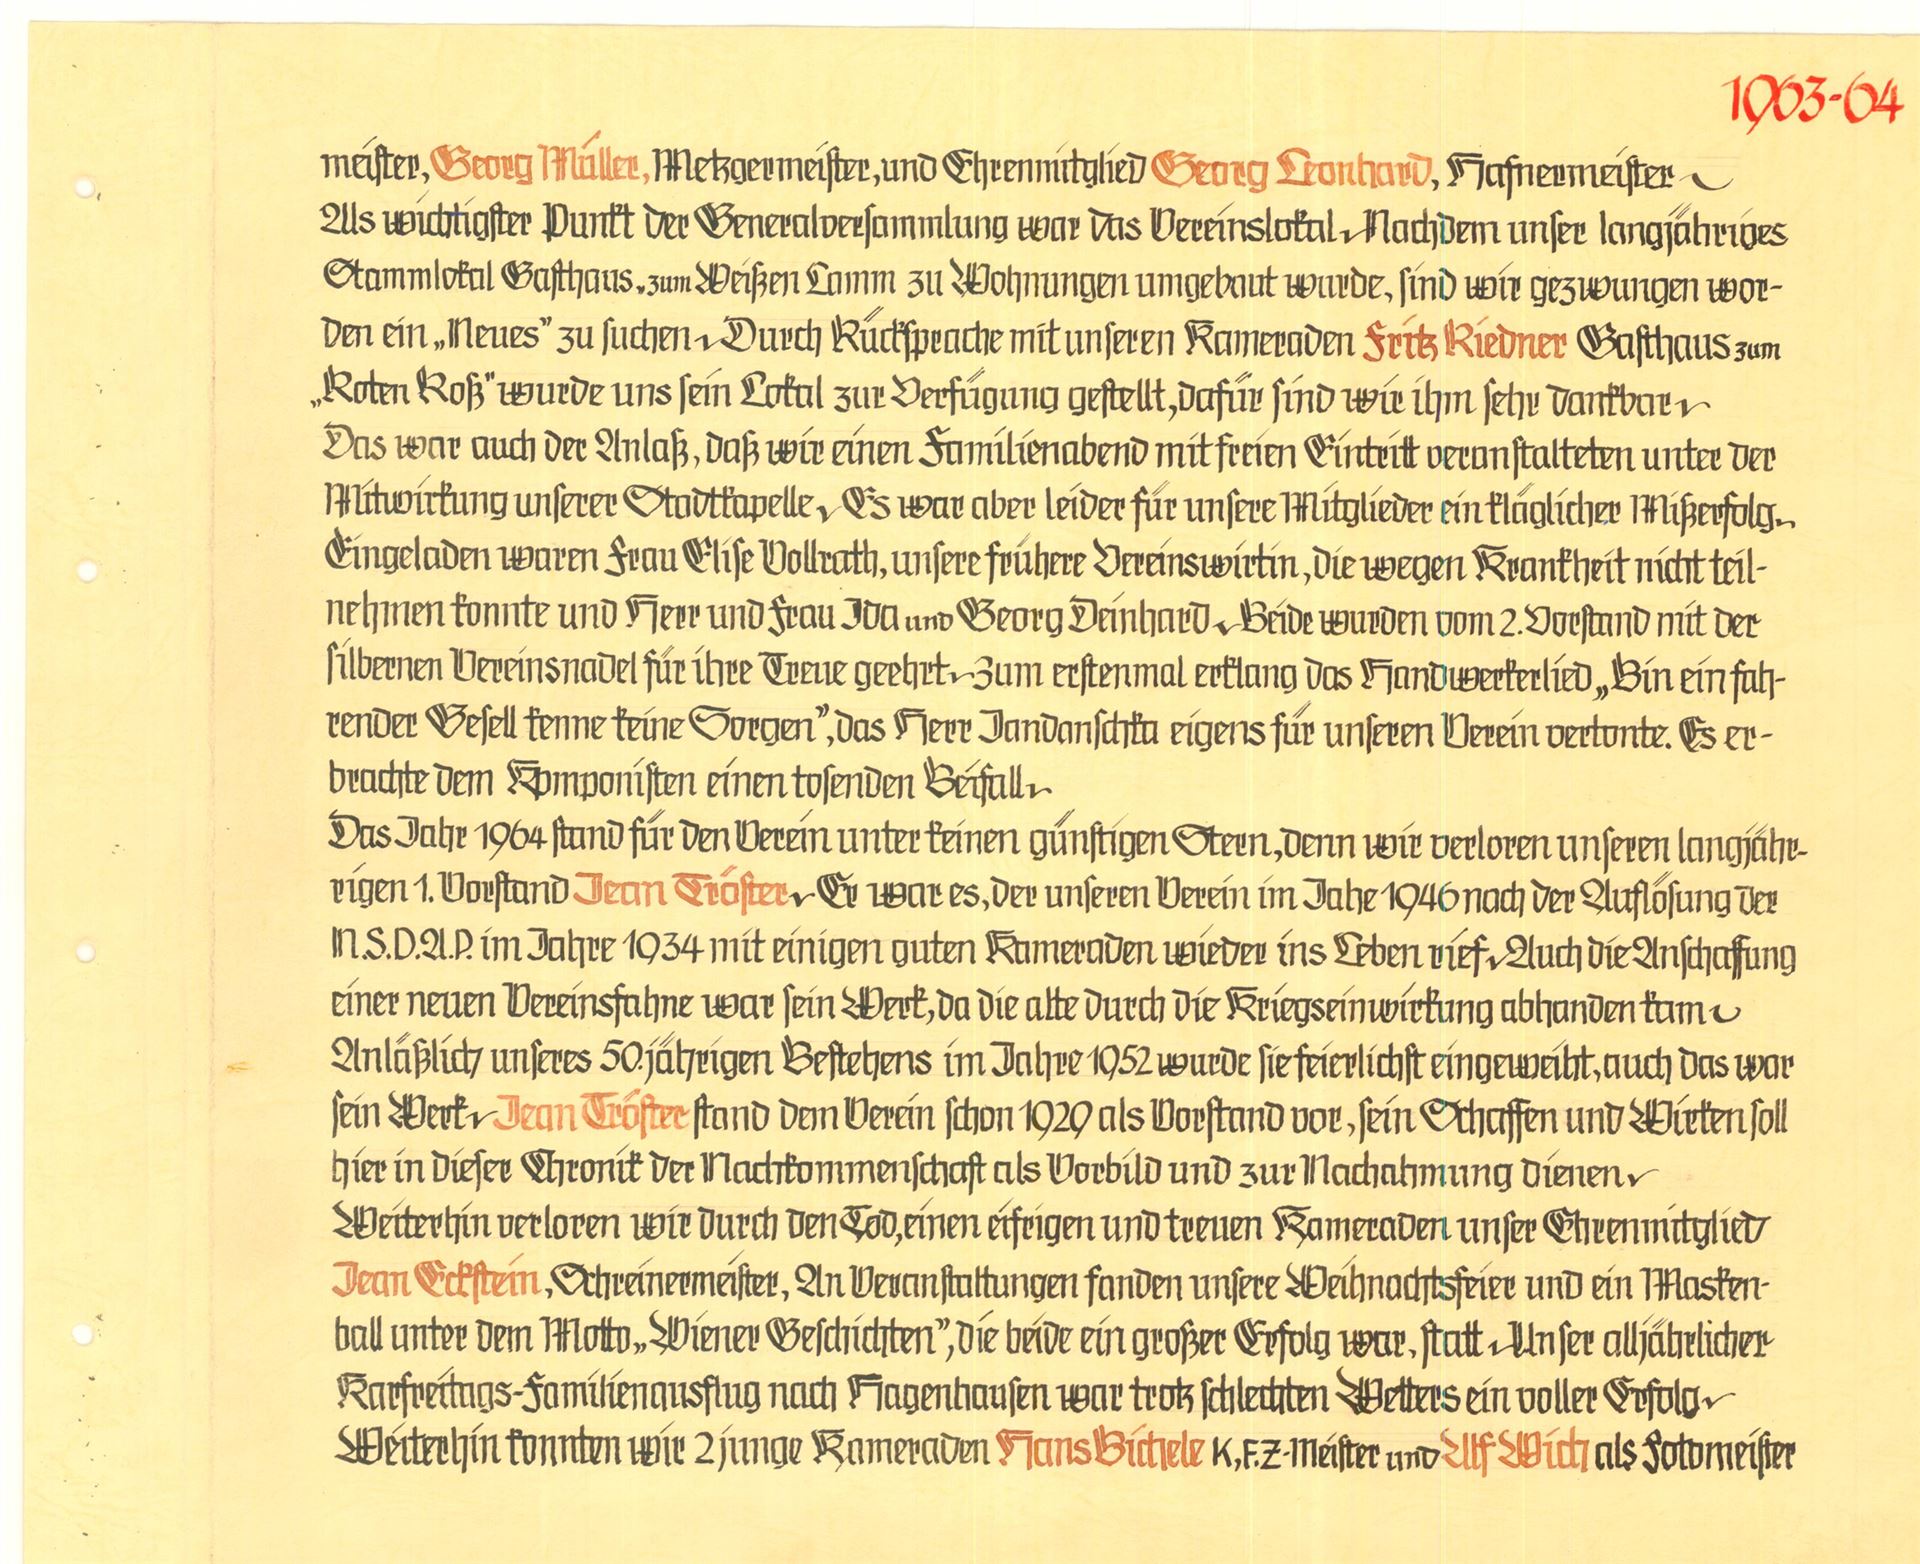 1963-64
meister, Georg Müller, Metzgermeister, und Ehrenmitglied Georg Leonhard, Hafnermeister.
Als wichtigster Punkt der Generalversammlung war das Vereinslokal. Nachdem unser langjähriges
Stammlokal Gasthaus „zum Weißen Lamm zu Wohnungen umgebaut wurde, sind wir gezwungen wor-
den ein „Neues" zu suchen. Durch Rücksprache mit unseren Kameraden Fritz Riedner Gasthaus zum
„Roten Roß" wurde uns sein Lokal zur Verfügung gestellt, dafür sind wir ihm sehr dankbar.
Das war auch der Anlaß, daß wir einen Familienabend mit freien Eintritt veranstalteten unter der
Mitwirkung unserer Stadtkapelle. Es war aber leider für unsere Mitglieder ein kläglicher Mißerfolg.
Eingeladen waren Frau Elise Vollrath, unsere frühere Vereinswirtin, die wegen Krankheit nicht teil-
nehmen konnte und Herr und Frau Ida und Georg Deinhard. Beide wurden vom 2. Vorstand mit der
silbernen Vereinsnadel für ihre Treue geehrt. Zum erstenmal erklang das Handwerkerlied „Bin ein fah-
render Gesell kenne keine Sorgen", das Herr Jandanschka eigens für unseren Verein vertonte. Es er-
brachte dem Komponisten einen tosenden Beifall.
Das Jahr 1964 stand für den Verein unter keinen günstigen Stern, denn wir verloren unseren langjähr-
rigen 1. Vorstand Jean Tröster. Er war es, der unseren Verein im Jahe 1946 nach der Auflösung der
N.S.D.A.P. im Jahre 1934 mit einigen guten Kameraden wieder ins Leben rief. Auch die Anschaffung
einer neuen Vereinsfahne war sein Werk, da die alte durch die Kriegseinwirkung abhanden kam.
Anläßlich unseres 50.jährigen Bestehens im Jahre 1952 wurde sie feierlichst eingeweiht, auch das war
sein Werk. Jean Tröster stand dem Verein schon 1929 als Vorstand vor, sein Schaffen und Wirken soll
hier in dieser Chronik der Nachkommenschaft als Vorbild und zur Nachahmung dienen.
Weiterhin verloren wir durch den Tod, einen eifrigen und treuen Kameraden unser Ehrenmitglied
Jean Eckstein, Schreinermeister, An Veranstaltungen fanden unsere Weihnachtsfeier und ein Masken-
ball unter dem Motto „Wiener Geschichten", die beide ein großer Erfolg war, statt. Unser alljährlicher
Karfreitags-Familienausflug nach Hagenhausen war trotz schlechten Wetters ein voller Erfolg.
Weiterhin konnten wir 2 junge Kameraden Hans Bichele K,F.Z-Meister und Ulf Wich als Fotomeister